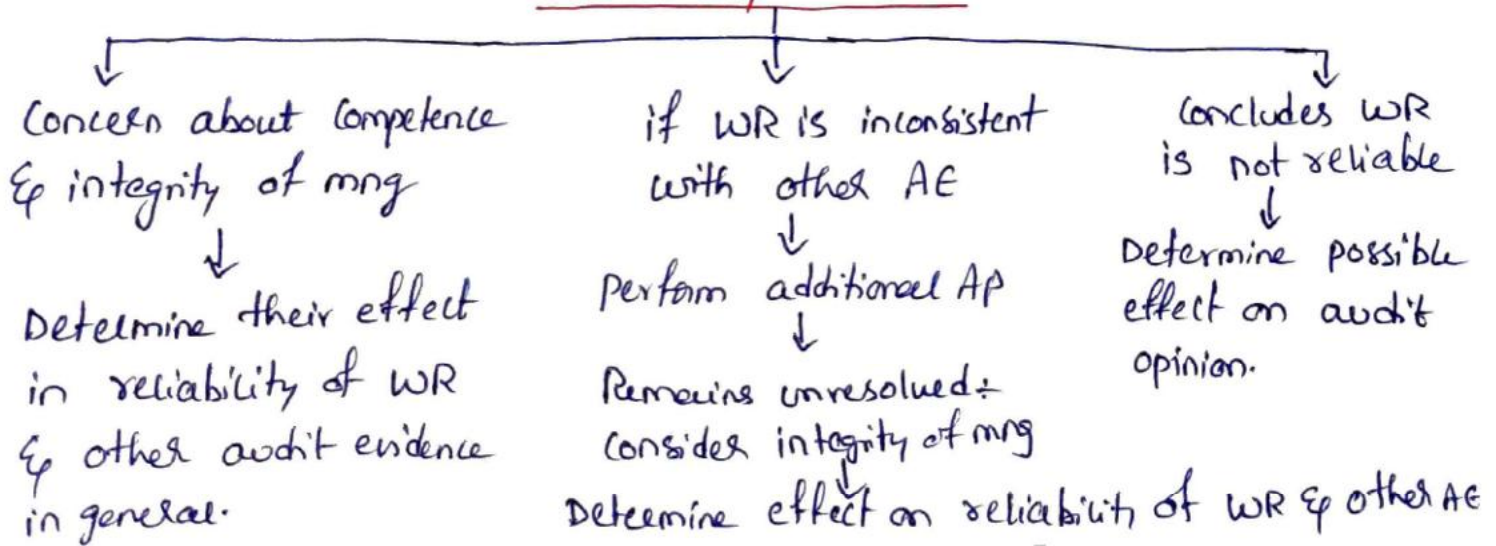 Concern about Competence
& integrity of mng
Determine their effect
in reliability of WR
& other audit evidence
in general.
if WR is inconsistent
with other AE
Perform additional AP
Remains unresolved:
consider integrity of mng
Determine effect on reliability of WR & other AE
Concludes WR
is not reliable
Determine possible
effect on audit
opinion.